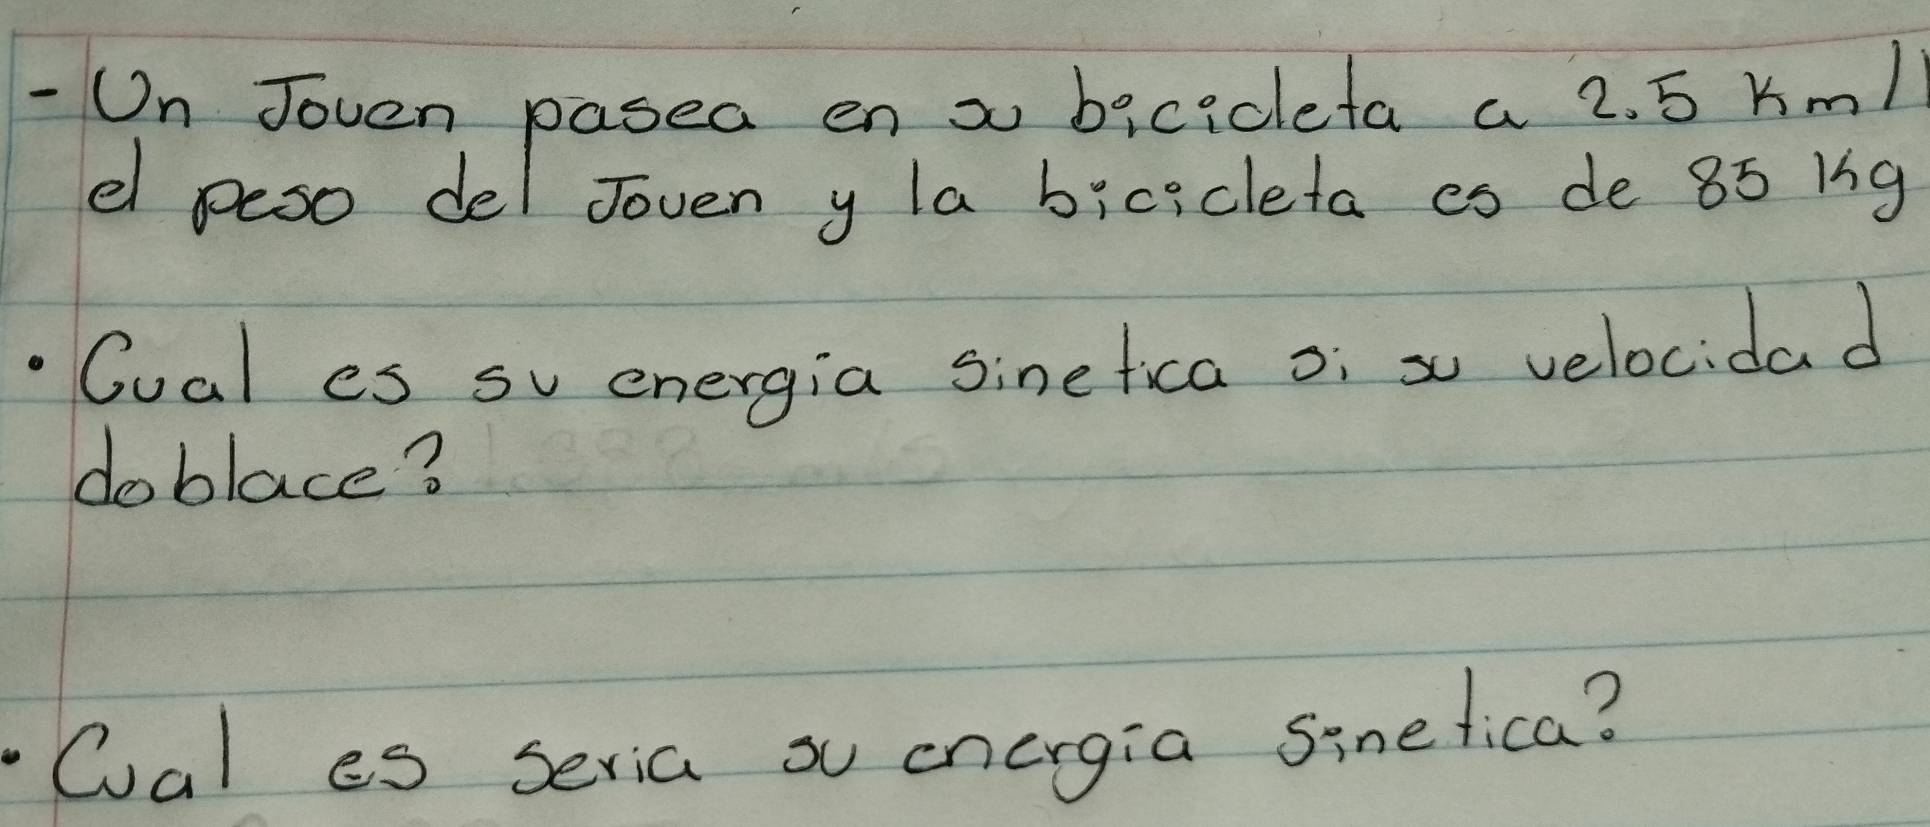 - Un Joven pasea en su bicicleta a 2.5 Km/
el peso del Joven y la bicicleta es de 85 Kg
• Cual es su energia sinetica si su velocidad
doblace?
• Cual es seria su energia sinetica?